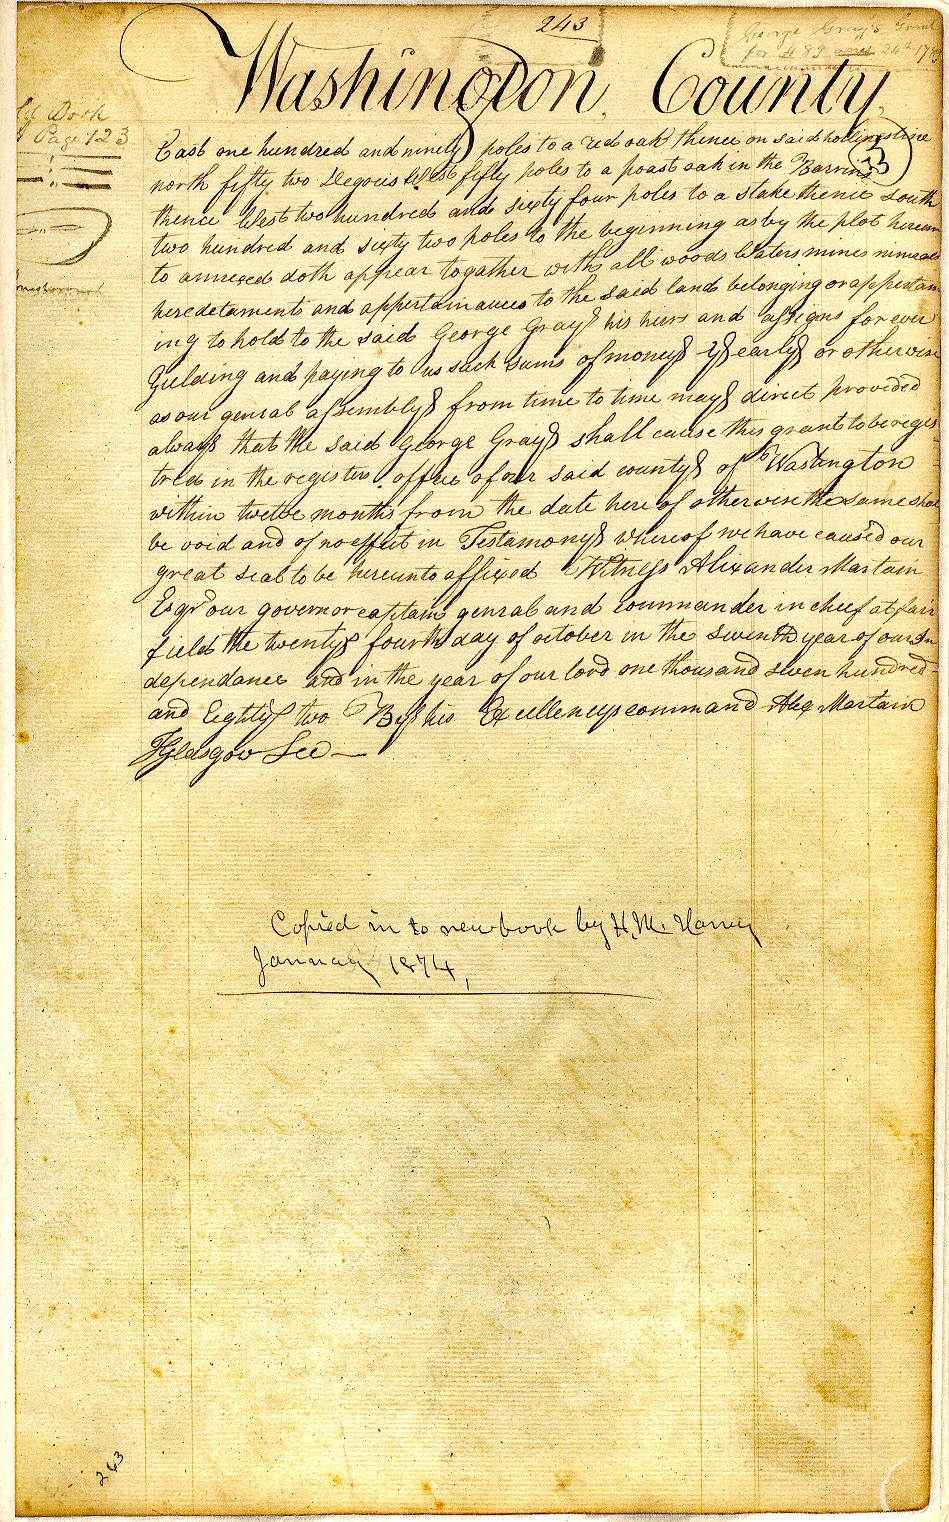 243
George Gray's
for 489 acres 24th 17
Washington County
Book
Page 123
73
East one hundred and ninety poles to a red oak thence on said line
north fifty two Degrees West fifty poles to a poast oak in the Barrins
thence West two hundred and sixty four poles to a stake thence south
two hundred and sixty two poles to the beginning as by the plot hereun
to annexed doth appear togather with all woods Waters mines minerals
heredetaments and appertainances to the said land belonging or appertain
ing to hold to the said George Gray his heirs and assigns for ever
Yielding and paying to us such sums of money yearly or otherwise
as our genral assembly from time to time may direct provided
always that the said George Gray shall cause this grant to be regis
tred in the registers office of our said county of Washington
within twelve months from the date here of otherwise the same shall
be void and of no effect in Testamony whereof we have caused our
great seal to be hereunto affixed Witness Alixander Martain
Esqr our governor captain genral and commander in cheef at fair
field the twenty fourth day of october in the seventh year of our In
dependance and in the year of our lord one thousand seven hundred
and Eighty two By his Excellencys command Alex Martain
J Glasgow Sec
Copied in to new book by H.M.
January 1874,
243